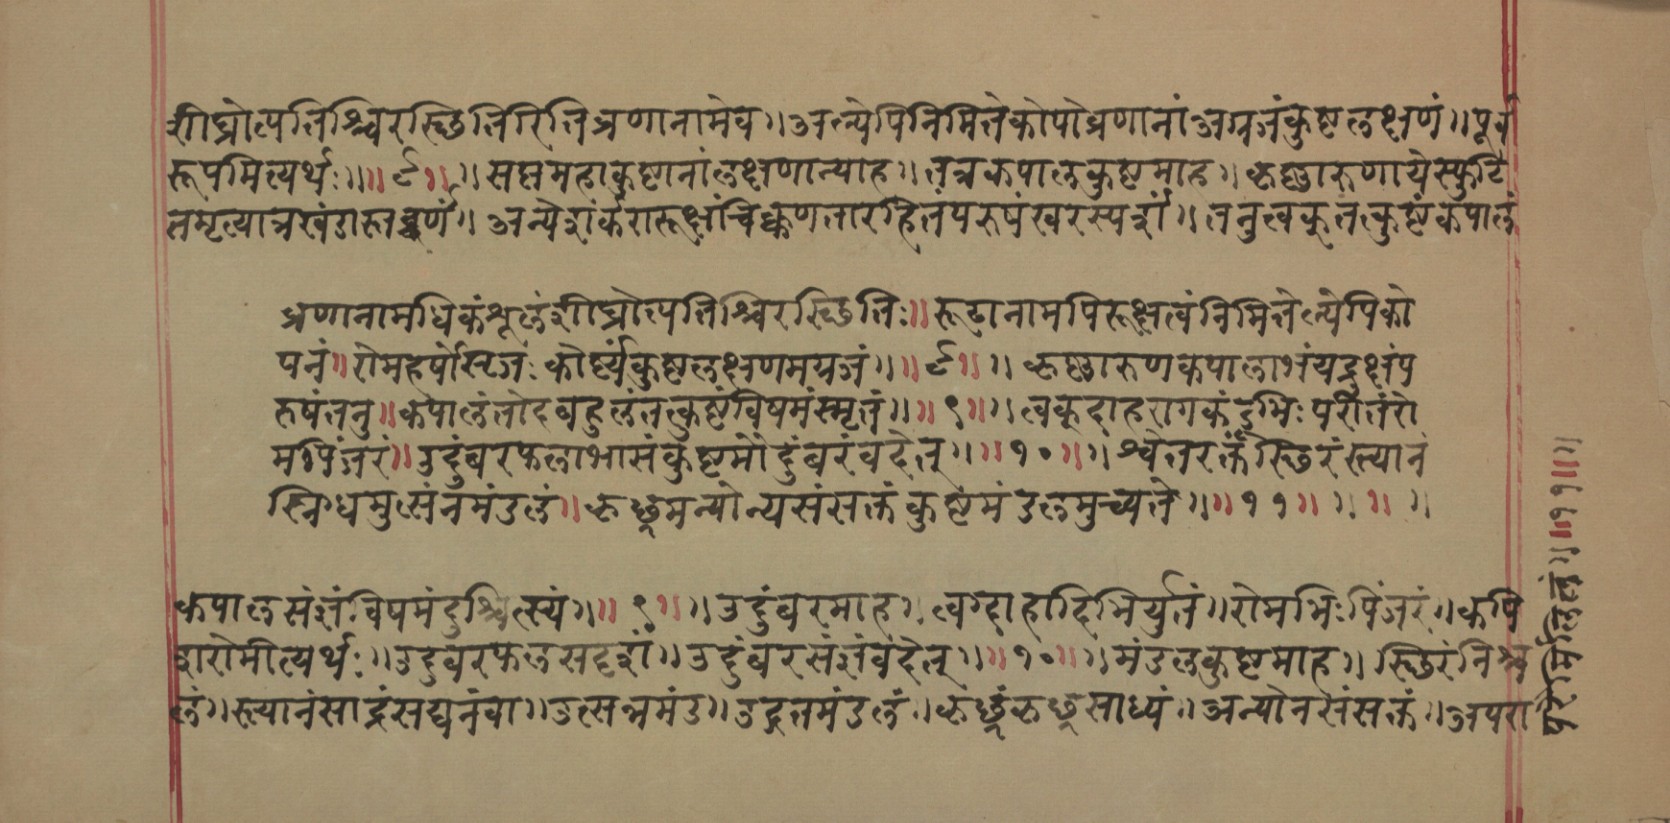 शीघ्रोत्पतिश्चिरस्छितिरितिव्रणानामेव॥अल्पेपिनिमितेकोपोव्रणानांअग्रजंकुष्टलक्षणं॥पूर्व
रूपमित्यर्थः॥॥८॥॥सप्तमहाकुष्टानांलक्षणान्याह॥तत्रकपालकुष्टमाह॥कृष्णारुणायेस्फुटि
तमृत्पात्रखंडास्तद्वर्णं॥अन्येशर्करारूक्षंचिक्कणतारहितंपरुषंखरस्पर्शं॥तनुत्वकूतत्कुष्टंकपालं
व्रणानामधिकंशूलंशीघ्रोत्पतिश्चिरस्छितिः॥रूढानामपिरूक्षत्वंनिमितेल्पेपिको
पनं॥रोमहर्षोसृजः कार्ष्ण्यंकुष्टलक्षणमग्रजं॥॥८॥॥कृष्णारुणकपालाभंयद्रूक्षंप
रुषंतनु॥कपालंतोदबहुलंतत्कुष्टंविषमंस्मृतं॥॥९॥॥त्वकूदाहरागकंडुभिःपरीतंरो
मपिंजरं॥उदुंबरफलाभासंकुष्टमौदुंबरंवदेत्॥॥१०॥॥श्वेतंरक्तंस्छिरंस्त्यानं
स्निग्धमुत्संनमंडलं॥कृछ्रमन्योन्यसंसक्तंकुष्टंमंडलमुच्यते॥॥११॥॥॥
कपालसंज्ञंविषमंदुश्चित्स्यं॥॥९॥॥उदुंबरमाह॥त्वग्दाहादिभिर्युतं॥रोमभिःपिंजरं॥कपि
शरोमीत्यर्थः॥उदुंवरफलसदृशं॥उदुंबरसंज्ञंवदेत्॥॥१०॥॥मंडलकुष्टमाह॥स्छिरंनिश्च
लं॥स्त्यानंसाद्रंसघनंवा॥उत्सन्नमंड॥उद्गतमंडलं॥कृछ्रंकृछ्रसाध्यं॥अन्योनसंसक्तं॥अपरा
परमिलितं॥॥११॥॥